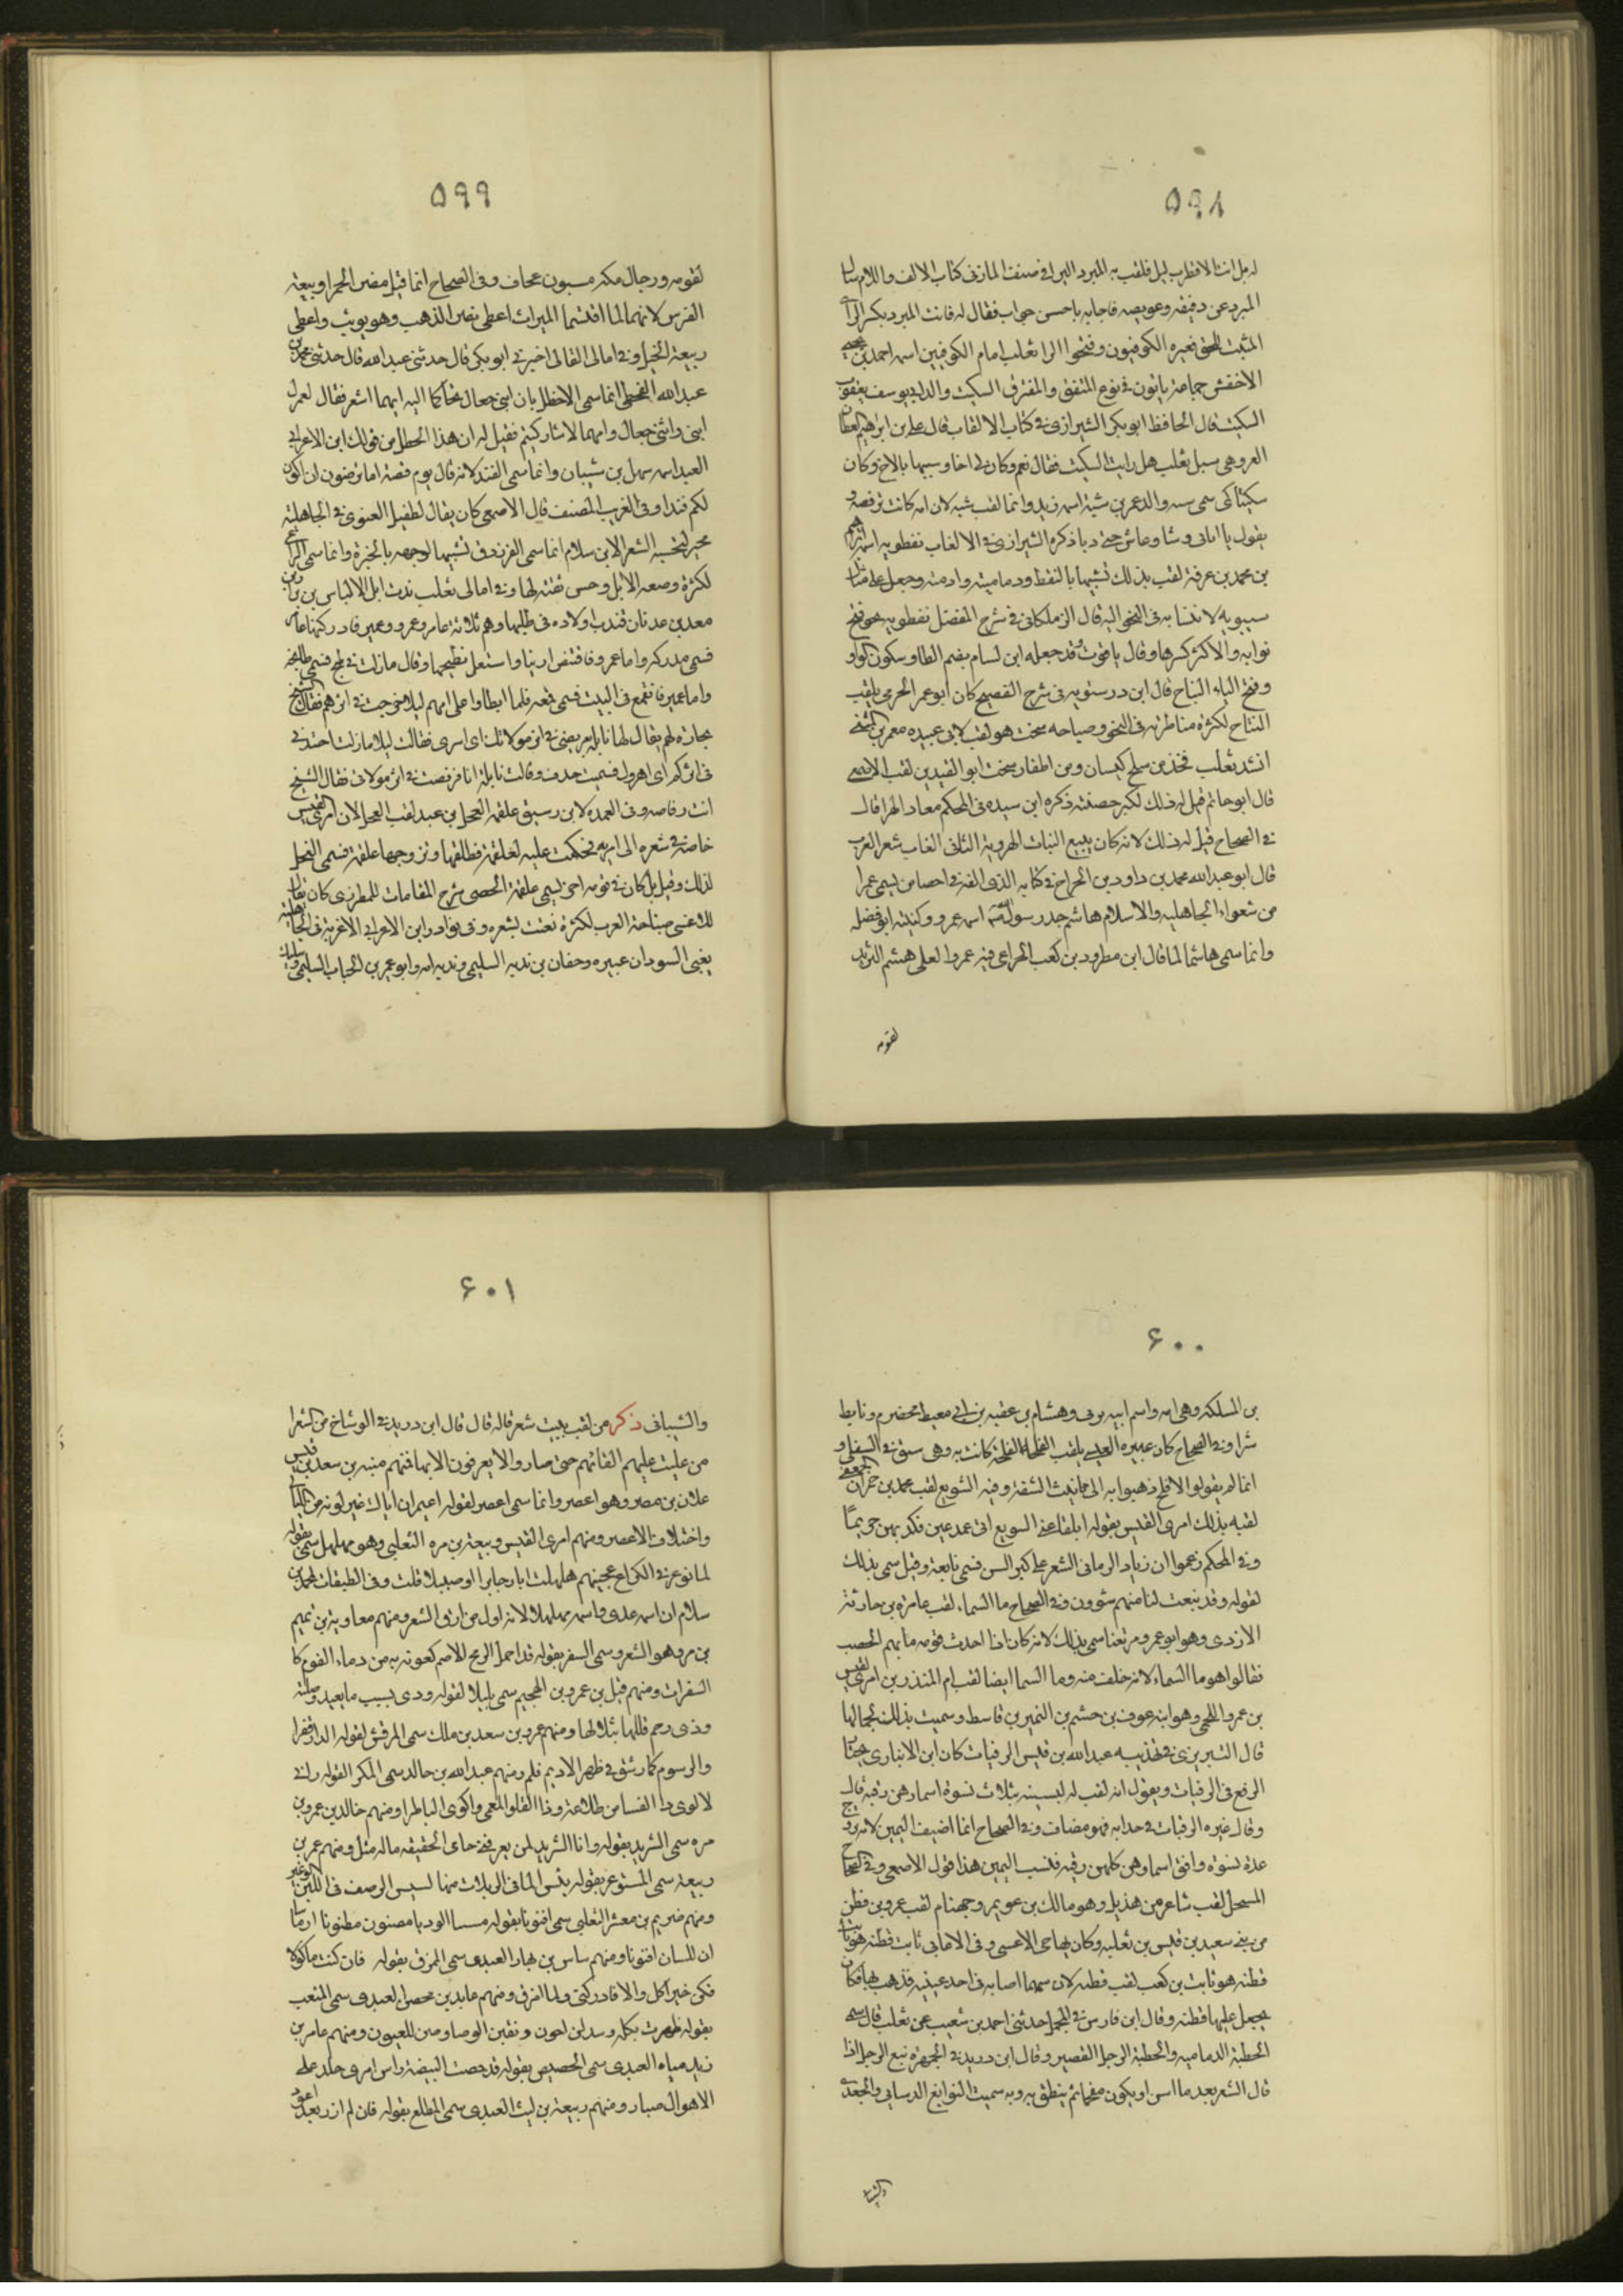 ٥٩٨
له مل انت الا قطرب ليل فلقب به المبرد اليرافي صنف المازني كتاب الالف واللام سال
المبرد عن دقيقه وعويصه فاجابه باحسن جواب فقال له فانت المبرد بكسر الراي
المثبت للحق فغيره الكوفيون وفتحوا الرا ثعلب امام الكوفيين اسمه احمد بن يحيى
الاخفش جماعة ياتون في نوع المتفق والمفترق السكيت والد ابي يوسف يعقوب
السكيت قال الحافظ ابو بكر الشيرازي في كتاب الالقاب قال علي بن ابراهيم القطان
العروضي سيل ثعلب هل رايت السكيت فقال نعم وكان لي اخا وسيبها بالاخ وكان
سكيتا كي سمي سه والد عمر بن شبة اسمه زيد وانما لقب شبه لان امه كانت ترقصه و
يقول يا ابابي وشا وعاش حتى دبا ذكره الشيرازي في الالقاب نفطويه اسمه ابراهيم
بن محمد بن عرفة لقب بذلك تشبيها بالنفط ودماميته وادمته وجعل على مثال
سيبويه لانتسابه في النحو اليه قال الزملكاني في شرح المفصل نفطويه هو بفتح
نوايه والاكثر كسرها وقال ياقوت وقد جعله ابن لسام بضم الطا وسكون الواو
وفتح الياء النباح قال ابن درستويه في شرح الفصيح كان ابوعمر الجرمي يلقب
النتاح لكثرة مناظرته في النحو وصياحه سخت هو لقب لابي عبيده معمر بن المثنى
انشد ثعلب فخذ من سلح كيسان ومن اظفار سخت ابو القيدين لقب الاصمعي
قال ابوحاتم قيل له ذلك لكبر خصتيه ذكره ابن سيده في المحكم معاد الهرا قال
في الصحاح قيل له ذلك لانه كان يبيع الثياب الهروية الثاني القاب شعر العرب
قال ابو عبد الله محمد بن داود بن الجراح في كتابه الذي الفه في احصا من يسمى عمرا
من شعراء الجاهليه والاسلام هاشم جد رسول الله اسمه عمرو وكنيته ابو فضله
وانما سمي هاشما لما قال ابن مطرود بن كعب الخزاعي فيه عمروا لعلى هشم الثريد
لقومه
٥٩٩
لقومه ورجال مكه مسبون عجاف وفي الصحاح انما قيل مضر الحمرا وربيعة
الفرس لانهما لما اقتسما الميراث اعطي مضر الذهب وهو يونث واعطي
ربيعة الخيل وفي امالي القالي اخبرني ابو بكر قال حدثني عبدالله قال حدثني محمد بن
عبدالله القحطبي انما سمي الاخطل بان ابني جعال تحاكما اليه ايهما اشعر فقال لعمرك
ابني وابني جعال وامهما لاستار كيتم فقيل له ان هذا الخطل من قولك ابن الاعرابي
العبد اسمه سهل بن شيبان وانما سمي الفند لانه قال يوم قصة اما ترضون ان اكون
لكم فندا وفي الغريب المصنف قال الاصمعي كان يقال لطفيل الغنوي في الجاهلية
محبر لتحسينه الشعر الا بن سلام انما سمي الفرزدق تشبيها لوجهه بالخبزة وانما سمي الراعي
لكثرة وصفه الابل وحسن نعته لها وفي امالي ثعلب ندت ابل الالياس بن نزار بن
معد بن عدنان فندب اولاده في طلبها وهم ثلاثة عامر وعمرو وعمير فادركها عامر
فسمي مدركه واما عمرو فاقتنص ارنبا واستعل بطبخها وقال مازلت في طبخ فسمي طابخه
واما عمير فانقمع في البيت فسمي قمعه فلما ابطاوا على امهم ليلا خرجت في اثرهم فقال الشيخ
لجاره لهم يقال لها نايله يرقضي في اثر مولاتك اي اسرعي فقالت ليلا مازلت اخندف
في اثركم اي اهرول فسميت خندف وقالت نايلة انا قرقصت في اثر مولاتي فقال الشيخ
انت رقاصه وفي العمده لابن رسيق علقمه الفحل بن عبد لقب الفحل لان امرئ القيس
خاصمه في شعره الى امراته فحكمت عليه لعلقمة فطلقها وتزوجها علقمة فسمي الفحل
لذلك وقيل بل كان في قومه اخر يسمى علقمة الخصي شرح المقامات للمطرزي كان يقال
للاعشى صناجة العرب لكثرة نعت بشعره وفي نوادر ابن الاعرابي الاغربة في الجاهلية
يعني السودان عنتره وخفان بن ندبه السليمي وندبه امه وابو عمير بن الحباب السليمي وسليك
٦٠٠
بن السلكة وهي امه واسم ابيه يربي وهشام بن عقبه بن ابي معيط مخضرم وتابط
شرا وفي الصحاح كان عنتره العبسي يلقب الفلحاء لفلحة كانت به وهي سبق في السفلى و
انما لم يقولوا الافلح ذهبوا به الى تانيث الشفة وفيه الشويعر لقب محمد بن حمران الجعفي
لقبه بذلك امرئ القيس بقوله ابلغا عني الشويع اني عمد عين نكبهن حريما
وفي المحكم زعموا ان زياد الرماني الشعر على كبر السن فسمي نابغة وقيل سمي بذلك
لقوله وقد نبغت لنا منهم شؤون وفي الصحاح ما السماء لقب عامر بن حارثة
الازدي وهو ابو عمرو مزيقيا سمي بذلك لانه كان اذا اجدب قومه مانهم الخصب
فقالوا هو ما السماء لانه خلف منه وما السما ايضا لقب ام المنذر بن امرئ القيس
بن عمرو اللخمي وهو ابنه عوف بن جشم بن النمير بن قاسط وسميت بذلك لجمالها
قال التبريزي في تهذيبه عبدالله بن قيس الرقيات كان ابن الانباري يختار
الرفع في الرقيات ويقول انه لقب له لتسبيبه بثلاث نسوة اسماؤهن رقيه قال
وقال غيره الرقيات جداته فهو مضاف وفي الصحاح انما اضيف اليهن لانه تزوج
عدة نسوة وافق اسماوهن كلهن رقيه فنسب اليهن هذا قول الاصمعي وفي الصحاح
المسحل لقب شاعر من هذيل وهو مالك بن عويمر وجهنام لقب عمرو بن قطن
من بني سعيد بن قيس بن ثعلبه وكان يهاجي الاعشى وفي الامالي ثابت قطنه هو ثابت
قطنه هو ثابت بن كعب لقب قطنه لان سهما اصابه في احد عينيه فذهب بها فكان
يجعل عليها قطنه وقال ابن فارس في المجمل حدثني احمد بن شعيب عن ثعلب قال سمي
الحطبة الدماميه والحطبة الرجل القصير وقال ابن دريد في الجمهرة نبع الرجل اذا
قال الشعر بعد ما اسن او يكون مفحما ثم ينطق به وبه سميت النوابغ الدبياني والجعدي
والشيبا
٦٠١
والشيباني ذكر من لقب ببيت شعر قاله قال قال ابن دريد في الوشاح من الشعرا
من غلبت عليهم القابهم حتى صاروا لا يعرفون الا بها فمنهم منبه بن سعد بن قيس
علان بن مصر وهو اعصر وانما سمي اعصر لقوله اعميران اباك غير لونه مر الليالي
واختلاف الاعصر ومنهم امرئ القيس وبيعة بن مره التغلبي وهو مهلهل سمي بقوله
لما توعر في الكراع هجينهم هلهلت اثار جابرا او صنبيلا قلت وفي الطبقات لمحمد بن
سلام ان اسمه عدي واسمه مهلهلا لانه اول من ارق الشعر ومنهم معاوية بن تميم
بن مر وهو الشعر وسمي السفر بقوله قد احمل الرمح للاصم كعوبه به من دماء القوم كا
السفرات ومنهم قيل بن عمرو بن الهجيم سمي بليلا لقوله ودي بسبب ما بعيد وصلته
وذي رحم قللها ببلالها ومنهم عمرو بن سعد بن ملك سمي المرقش لقوله الدار قفرا
والرسوم كما رشق في ظهر الاديم قلم ومنهم عبدالله بن خالد سمي المكر القوله راني
لالوى دا الغسا من طلاعته وذا القلو المعمى واكوي الناظرا ومنهم خالد بن عمرو بن
مره سمي الشريد بقوله وانا الشريد لمن يعرفني حامي الحقيقه ماله مثل ومنهم عمر بن
ربيعة سمي المستوغر بقوله ينش الما في الربلات منها نسيس الرصف في اللبن الوغير
ومنهم صريم بن معشر التغلبي سمي افنونا بقوله مسبا الود يا مضنون مظنونا ازماننا
ان للسان افنونا ومنهم ساس بن نهار العبدي سمي المزق بقوله فان كنت ماكولا
فكن خير اكل والا فادركني ولما امزق ومنهم عايد بن محصن العبدي سمي المثقب
بقوله ظهرت بكله وسدلن اخون وثقبن الوصاوص للعيون ومنهم عامر بن
زيد مياه العبدي سمي الحصيص بقوله قد حصت البيضة راس امري جلد على
الاهوال صبار ومنهم ربيعة بن ليث العبدي سمي المطلع بقوله فان لم ازر بعدي اعود